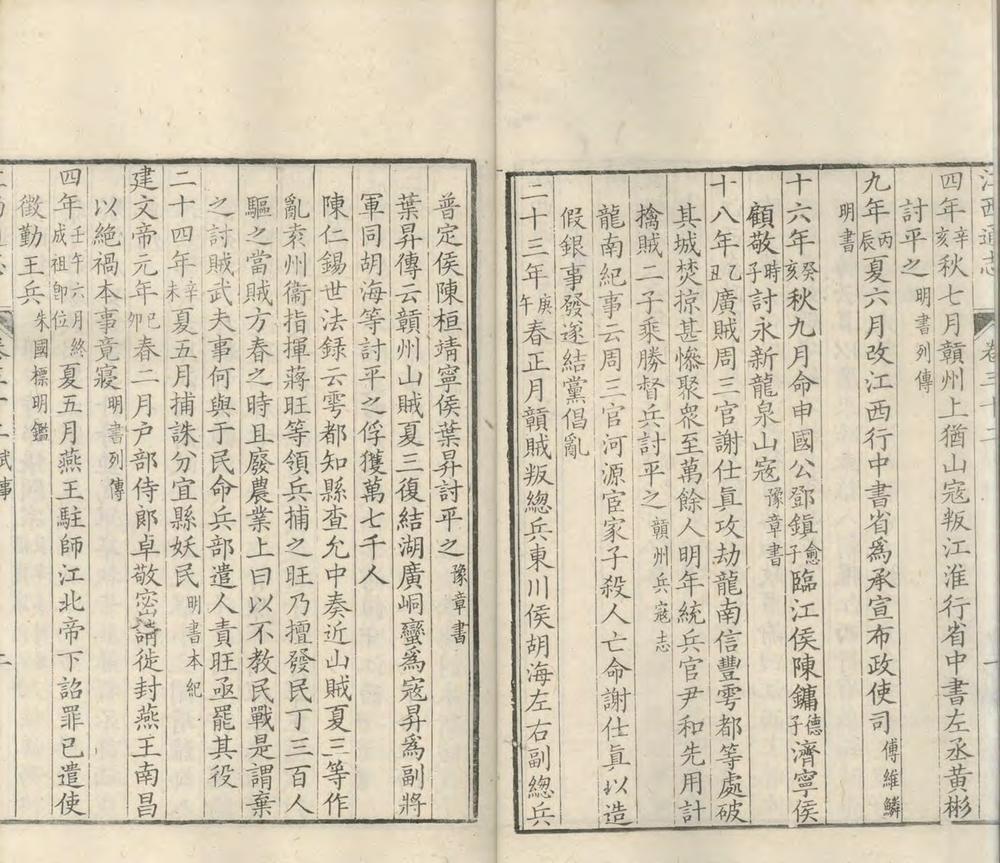 江西通志 卷三十二
四年辛亥秋七月贑州上猶山寇叛江淮行省中書左丞黃彬
討平之明書列傳
九年丙辰夏六月改江西行中書省爲承宣布政使司傅維鱗
明書
十六年癸亥秋九月命申國公鄧鎭愈子臨江侯陳鏞德子濟寧侯
顧敬時子討永新龍泉山寇豫章書
十八年乙丑廣賊周三官謝仕眞攻劫龍南信豐雩都等處破
其城焚掠甚慘聚衆至萬餘人明年統兵官尹和先用計
擒賊二子乘勝督兵討平之贑州兵寇志
龍南紀事云周三官河源宦家子殺人亡命謝仕眞以造
假銀事發遂結黨倡亂
二十三年庚午春正月贑賊叛總兵東川侯胡海左右副總兵
普定侯陳桓靖寧侯葉昇討平之豫章書
葉昇傳云贑州山賊夏三復結湖廣峒蠻爲寇昇爲副將
軍同胡海等討平之俘獲萬七千人
陳仁錫世法録云雩都知縣查允中奏近山賊夏三等作
亂袁州衞指揮蔣旺等領兵捕之旺乃擅發民丁三百人
驅之當賊方春之時且廢農業上曰以不教民戰是謂棄
之討賊武夫事何與于民命兵部遣人責旺亟罷其役
二十四年辛未夏五月捕誅分宜縣妖民明書本紀
建文帝元年己卯春二月户部侍郎卓敬密請徙封燕王南昌
以絕禍本事竟寢明書列傳
四年壬午六月終成祖卽位夏五月燕王駐師江北帝下詔罪已遣使
徵勤王兵朱國標明鑑
武事